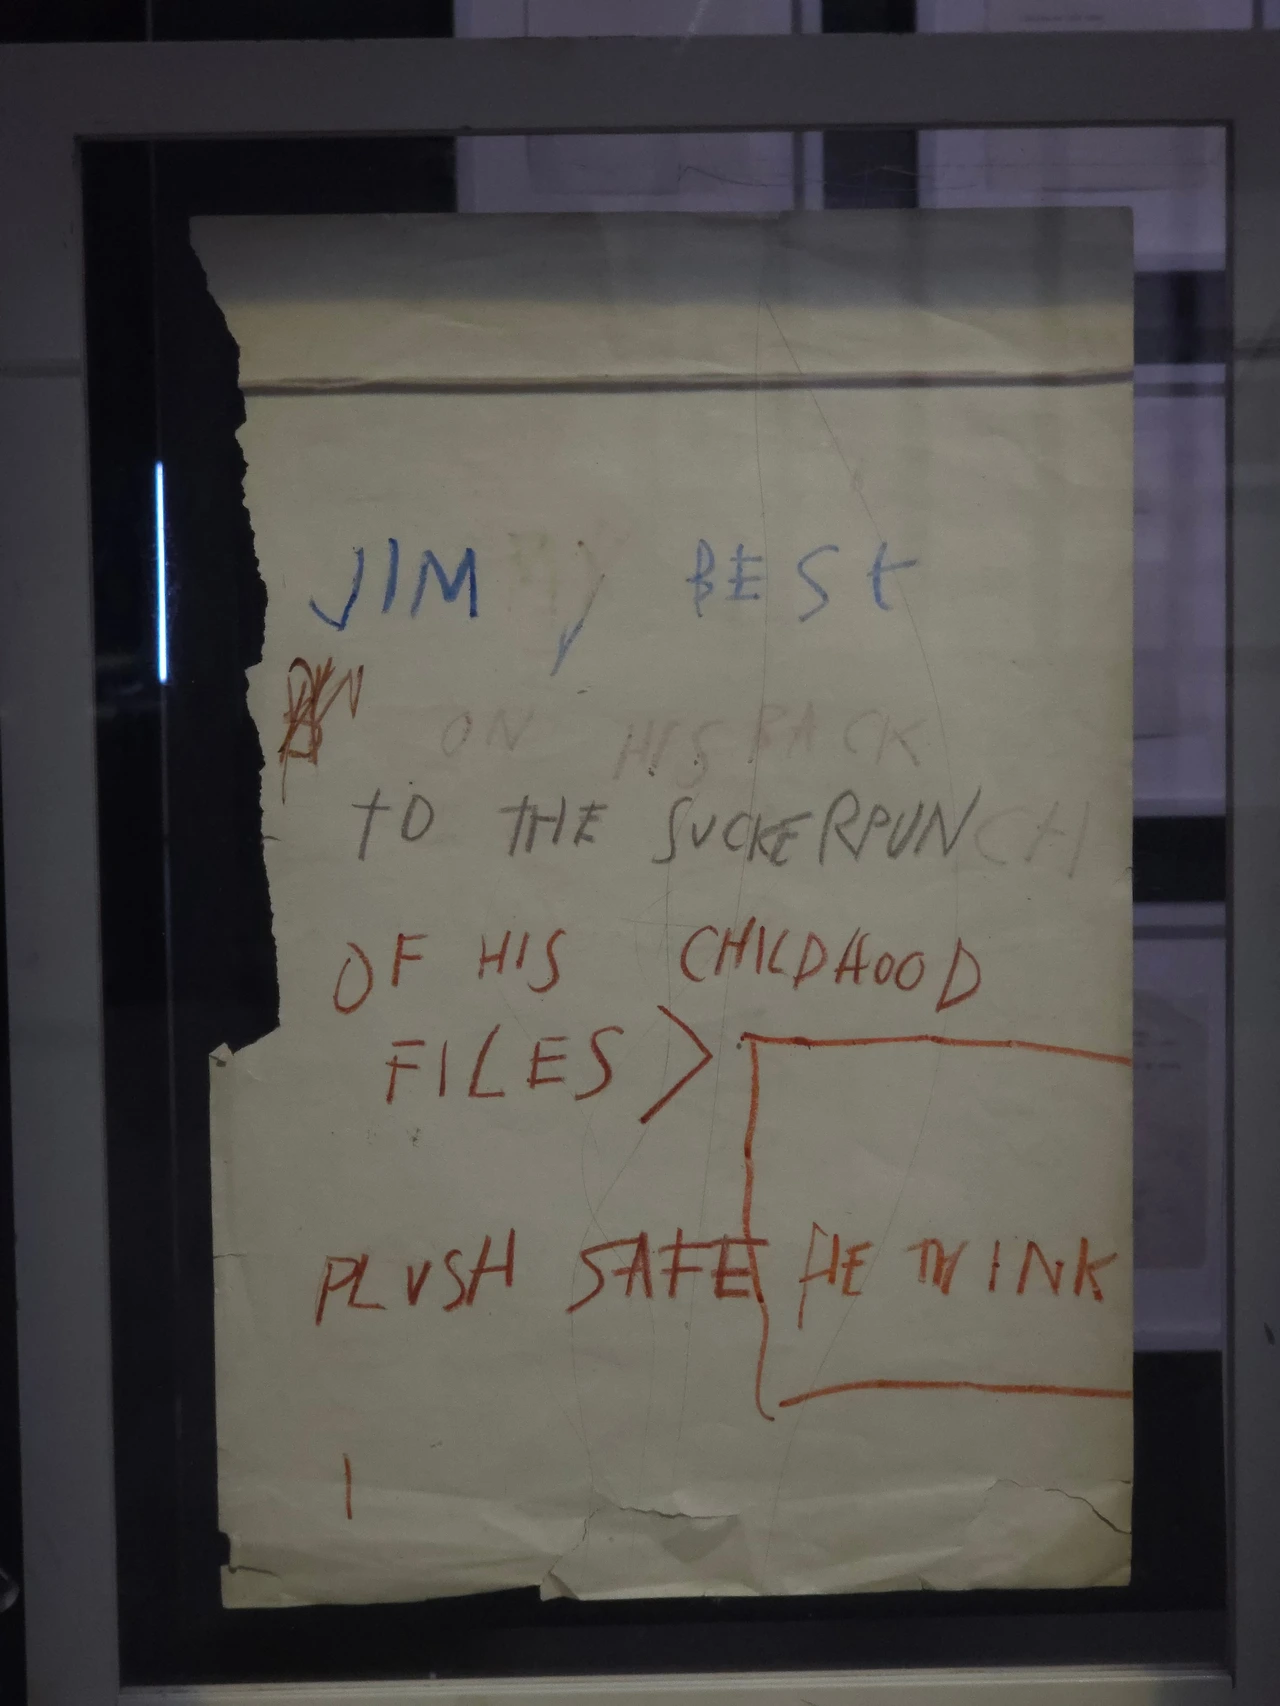 JIMMY BESt
ON HIS BACK
tO THE SUCKERPUNCH
OF HIS CHILDHOOD
FILES >
PLUSH SAFE HE THINK